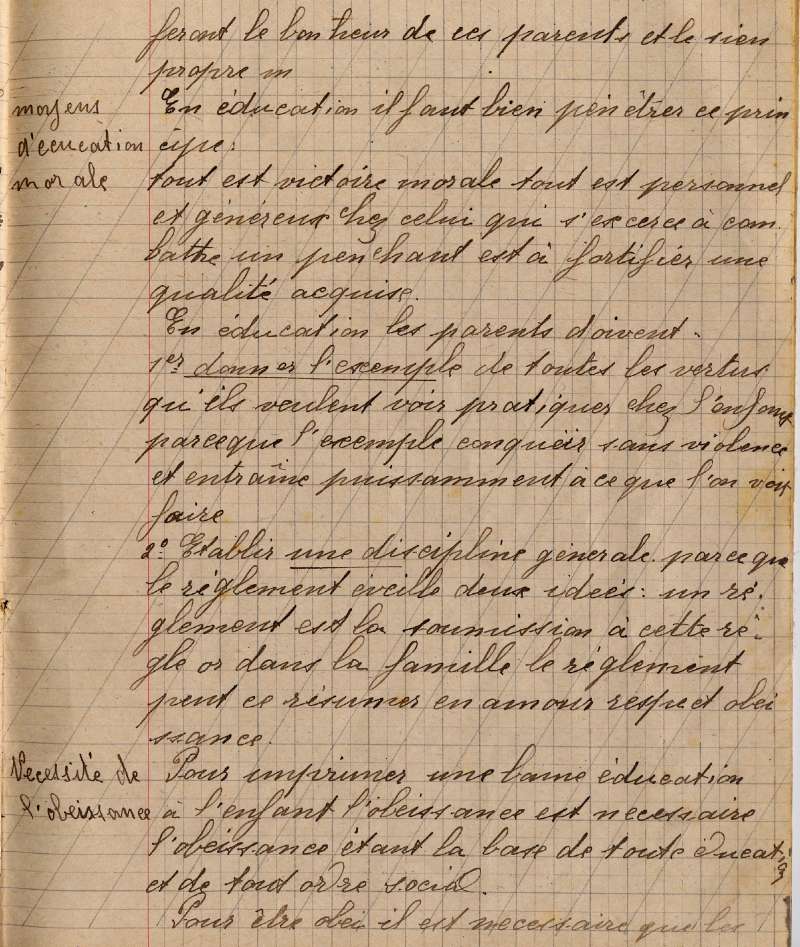 feront le bonheur de ces parents et le sien
propre
moyens
d'éducation
morale
En éducation il faut bien pénêtrer ce prin
cipe:
tout est victoire morale tout est personnel
et généreux chez celui qui s'excerce à com
battre un penchant est à fortifier une
qualité acquise.
En éducation les parents doivent.
1er donner l'exemple de toutes les vertus
qu'ils veulent voir pratiquer chez l'enfant
parceque l'exemple conquéir sans violence
et entraîne puissamment à ce que l'on voit
faire
2º Etablir une discipline générale. parce que
le réglement éveille deux ideés: un ré.
glement est la soumission à cette ré-
gle or dans la famille le réglement
peut ce résumer en amour respect obei
ssance.
Necessité de
l'obeissance
Pour imprimer une bonne éducation
à l'enfant l'obeissance est necessaire
l'obéissance étant la base de toute éducation
et de tout ordre social.
Pour être obei il est necessaire que les